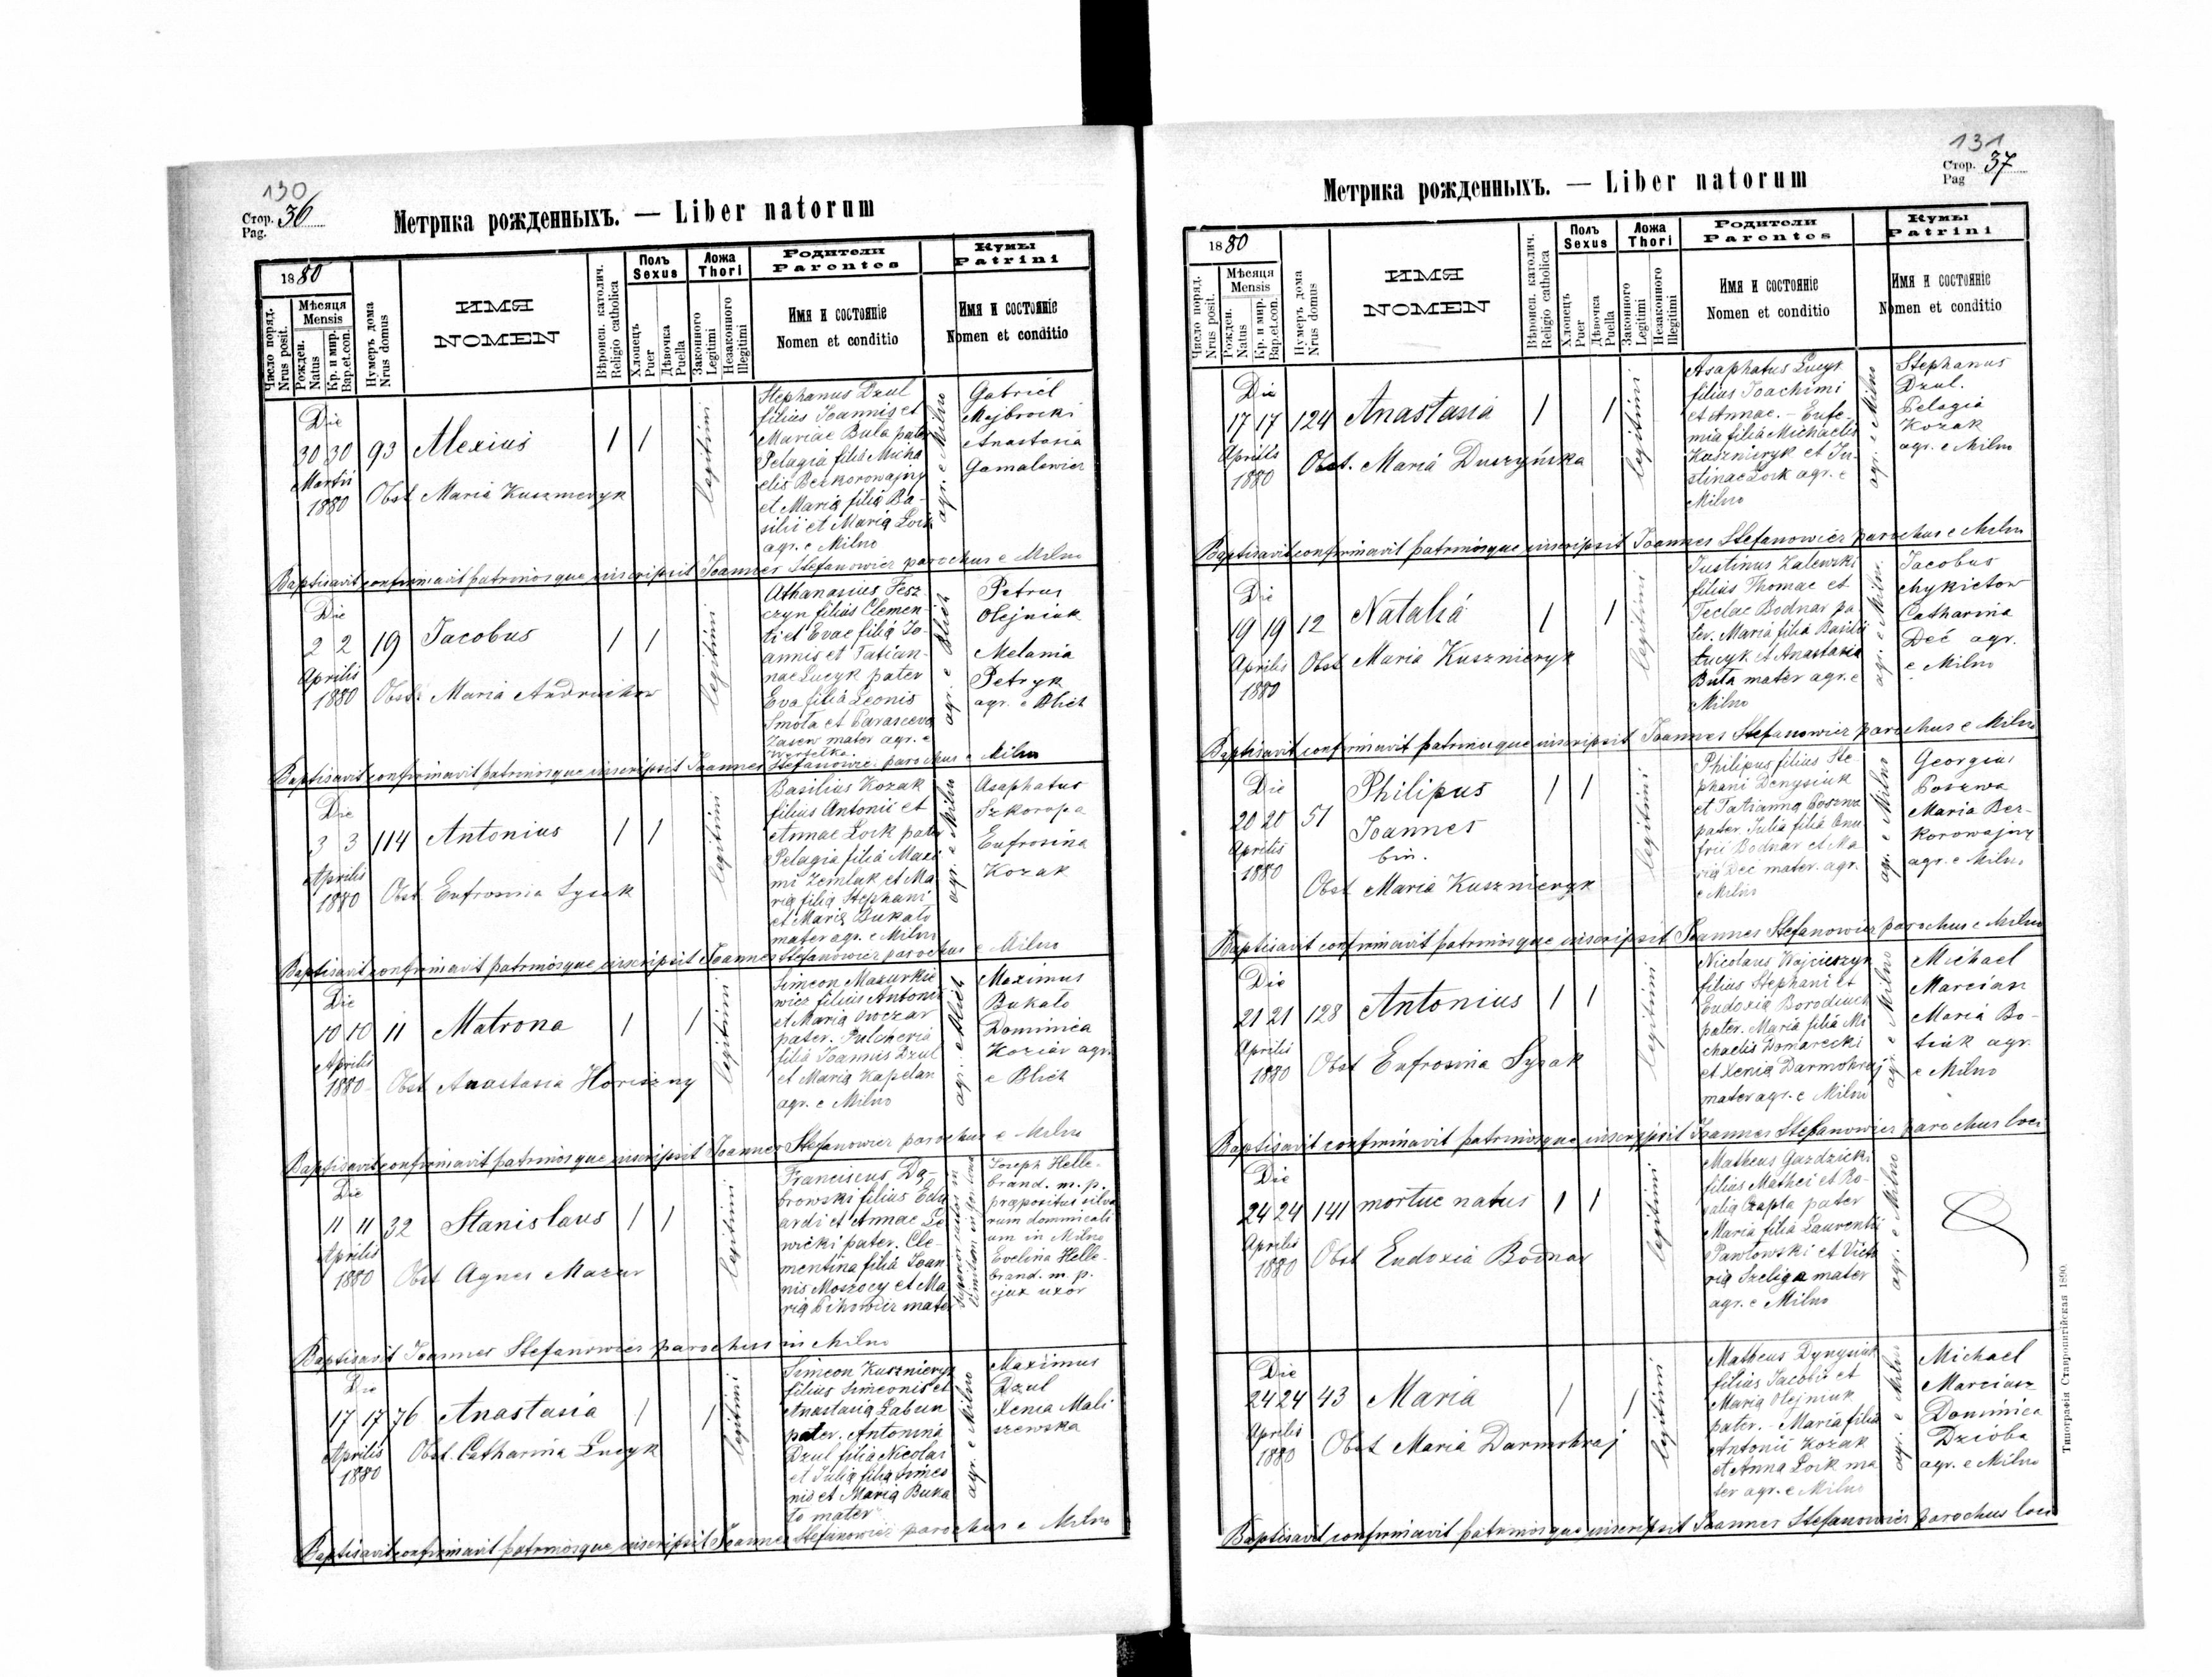 130
Стор. 36
Pag.
Метрика рожденныхъ. — Liber natorum
1880
Число поряд.
Nrus posit.
Мѣсяця
Mensis
Рожден.
Natus
Кр. и мир.
Bap.et.con.
Нумеръ дома
Nrus domus
ИМЯ
NOMEN
Вѣроисп. католич.
Religio catholica
Полъ
Sexus
Хлопецъ
Puer
Дѣвочка
Puella
Ложа
Thori
Законного
Legitimi
Незаконного
Illegitimi
Родители
Parentes
Имя и состояніе
Nomen et conditio
Кумы
Patrini
Имя и состояніе
Nomen et conditio
Die
30 30 93 Alexius 1 1
Martii
1880
Obst Maria Kusznieryk
legitimi
Stephanus Dzul
filius Joannis et
Mariae Bula pater
Pelagia filia Micha
elis Berkorowajny
et Maria filia Ba-
silii et Maria Loik
agr. e Milno
agr. e Milno
Gabriel
Majbrocki
Anastasia
Gamalewicz
Baptisavit confirmavit patrinosque inscripsit Joannes Stefanowicz parochus e Milno
Die
2 2 19 Jacobus 1 1
Aprilis
1880
Obst. Maria Andruchow
legitimi
Athanasius Fesz
czyn filius Clemen-
ti et Evae filia Jo-
annis et Tatian-
nae Lucyk pater
Eva filia Leonis
Smota et Parasceva
Zasew mater agr. e
Wertelka
agr. e Blich
Petrus
Olejniuk
Melania
Petryk
agr. e Blich
Baptisavit confirmavit patrinosque inscripsit Joannes Stefanowicz parochus e Milno
Die
3 3 114 Antonius 1 1
Aprilis
1880
Obst. Eufrosina Sysak
legitimi
Basilius Kozak
filius Antonii et
Annae Loik pater
Pelagia filia Maxi
mi Zemluk et Ma
ria filia Stephani
et Maria Bukato
mater agr. e Milno
agr. e Milno
Asaphatus
Szkoropa
Eufrosina
Kozak
Baptisavit confirmavit patrinosque inscripsit Joannes Stefanowicz parochus e Milno
Die
10 10 11 Matrona 1 1
Aprilis
1880
Obst Anastasia Horiszny
legitimi
Simeon Mazurkie
wicz filius Antonii
et Maria Owczar
pater. Pulcheria
filia Joannis Dzul
et Maria Kapelan
agr. e Milno
agr. e Blich
Maximus
Bukato
Dominica
Koziar agr.
e Blich
Baptisavit confirmavit patrinosque inscripsit Joannes Stefanowicz parochus e Milno
Die
11 11 32 Stanislaus 1 1
Aprilis
1880
Obst Agnes Mazur
legitimi
Franciscus Dą-
browski filius Edu
ardi et Annae Le
wicki pater. Cle-
mentina filia Joan
nis Moszocy et Ma
ria mater
Joseph Helle-
brand. m. p.
præpositus silva
rum dominicali
um in Milno
Evelina Helle-
brand. m. p.
ejux uxor
Baptisavit Joannes Stefanowicz parochus in Milno
Die
17 17 76 Anastasia 1 1
Aprilis
1880
Obst. Catharina Lucyk
legitimi
Simeon Kusznieryk
filius Simeonis et
Anastasia Labun
pater. Antonina
Dzul filia Nicolai
et Julia filia Simeo
nis et Maria Buka
to mater
agr. e Milno
Maximus
Dzul
Xenia Mali
szewska
Baptisavit confirmavit patrinosque inscripsit Joannes Stefanowicz parochus e Milno
131
Стор. 37
Pag
Метрика рожденныхъ. — Liber natorum
1880
Число поряд.
Nrus posit.
Мѣсяця
Mensis
Рожден.
Natus
Кр. и мир.
Bap.et.con.
Нумеръ дома
Nrus domus
ИМЯ
NOMEN
Вѣроисп. католич.
Religio catholica
Полъ
Sexus
Хлопецъ
Puer
Дѣвочка
Puella
Ложа
Thori
Законного
Legitimi
Незаконного
Illegitimi
Родители
Parentes
Имя и состояніе
Nomen et conditio
Кумы
Patrini
Имя и состояніе
Nomen et conditio
Die
17 17 124 Anastasia 1 1
Aprilis
1880
Obst. Maria Duszyńska
legitimi
Asaphatus Lucyk
filius Joachimi
et Annae. - Eufe-
mia filia Michaelis
Kusznieryk et Ju-
stinae Loik agr. e
Milno
agr. e Milno
Stephanus
Dzul.
Pelagia
Kozak
agr. e Milno
Baptisavit confirmavit patrinosque inscripsit Joannes Stefanowicz parochus e Milno
Die
19 19 12 Natalia 1 1
Aprilis
1880
Obst Maria Kusznieryk
legitimi
Justinus Zalewski
filius Thomae et
Teclae Bodnar pa
ter. Maria filia Basilii
Lucyk et Anastasia
Buta mater agr. e
Milno
agr. e Milno
Jacobus
Mykietow
Catharina
Deć agr.
e Milno
Baptisavit confirmavit patrinosque inscripsit Joannes Stefanowicz parochus e Milno
Die
20 20 51 Philipus 1 1
Joannes
bin.
Aprilis
1880
Obst Maria Kusznieryk
legitimi
Philipus filius Ste-
phani Denysiuk
et Tatianna Poszwa
pater. Julia filia Onu
frii Bodnar et Ma
ria Deć mater. agr.
e Milno
agr. e Milno
Georgius
Poszwa
Maria Ber-
korowajny
agr. e Milno
Baptisavit confirmavit patrinosque inscripsit Joannes Stefanowicz parochus e Milno
Die
21 21 128 Antonius 1 1
Aprilis
1880
Obst Eufrosina Sysak
legitimi
Nicolaus Wojciszyn
filius Stephani et
Eudoxia Borodiuch
pater. Maria filia Mi
chaelis Domarecki
et Xenia Darmohraj
mater agr. e Milno
agr. e Milno
Michael
Marcian
Maria Bo-
tiuk agr.
e Milno
Baptisavit confirmavit patrinosque inscripsit Joannes Stefanowicz parochus loci
Die
24 24 141 mortue natus 1 1
Aprilis
1880
Obst Eudoxia Bodnar
legitimi
Matheus Gazdzicki
filius Mathei et Ro-
salia Czapla pater
Maria filia Laurentii
Pawlowski et Victo
ria Szeliga mater
agr. e Milno
agr. e Milno
Die
24 24 43 Maria 1 1
Aprilis
1880
Obst Maria Darmohraj
legitimi
Matheus Dynysiuk
filius Jacobi et
Maria Olejniuk
pater. - Maria filia
Antonii Kozak
et Anna Loik ma
ter agr. e Milno
agr. e Milno
Michael
Marciasz
Dominica
Dzioba
agr. e Milno
Baptisavit confirmavit patrinosque inscripsit Joannes Stefanowicz parochus loci
Типографія Ставропигійская 1890.